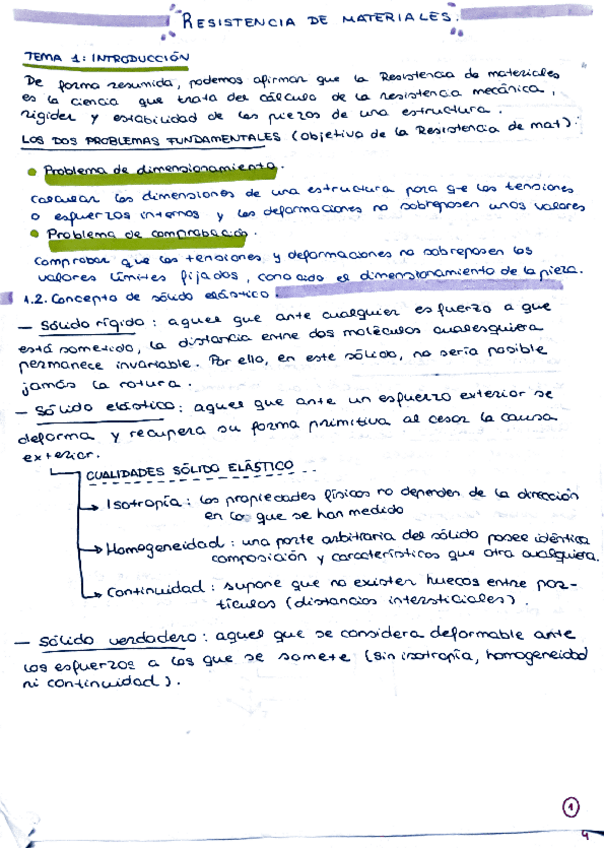 RESISTENCIA DE MATERIALES.
TEMA 1: INTRODUCCIÓN
De forma resumida, podemos afirmar que la Resistencia de materiales
es la ciencia que trata del cálculo de la resistencia mecánica,
rigidez y estabilidad de las piezas de una estructura.
LOS DOS PROBLEMAS FUNDAMENTALES (objetivo de la Resistencia de mat):
Problema de dimensionamiento.
Calcular las dimensiones de una estructura para q-e las tensiones
o esfuerzos internos y las deformaciones no sobrepasen unos valores
Problema de comprobación.
Comprobar que las tensiones y deformaciones no sobrepasen los
valores límites fijados, conocido el dimensionamiento de la pieza.
1.2. Concepto de sólido elástico.
— Sólido rígido: aquel que ante cualquier esfuerzo a que
está sometido, la distancia entre dos moléculas cualesquiera
permanece invariable. Por ello, en este sólido, no sería posible
jamás la rotura.
— Sólido elástico: aquel que ante un esfuerzo exterior se
deforma y recupera su forma primitiva al cesar la causa
exterior.
CUALIDADES SÓLIDO ELÁSTICO
→ Isotropía: las propiedades físicas no dependen de la dirección
en la que se han medido
→ Homogeneidad: una parte arbitraria del sólido posee idéntica
composición y características que otra cualquiera.
→ Continuidad: supone que no existen huecos entre par-
tículas (distancias intersticiales).
— Sólido verdadero: aquel que se considera deformable ante
los esfuerzos a los que se somete (sin isotropía, homogeneidad
ni continuidad).
1
4